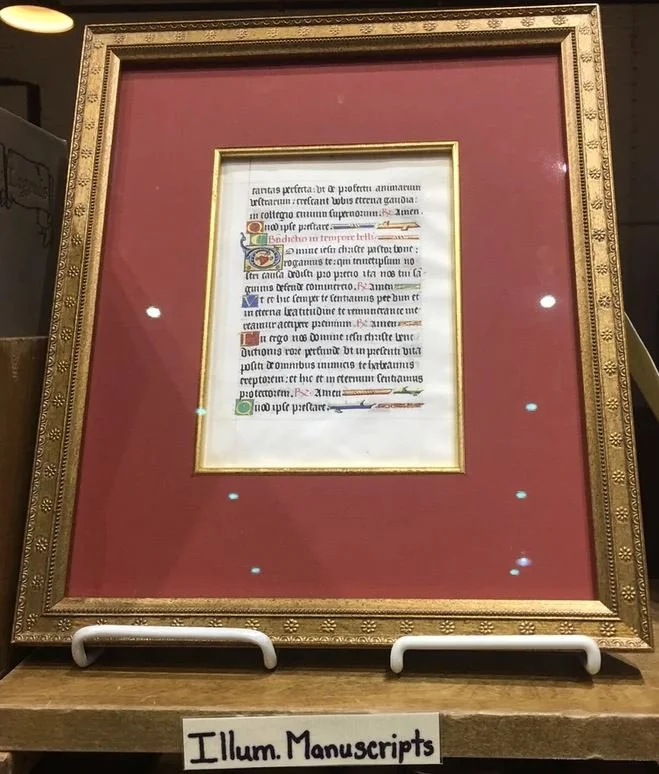 caritas perfecta: ut de profectu animarum
vestrarum: crescant vobis eterna gaudia:
in collegio civium supernorum. R: Amen.
Quod ipse prestare.
Benedictio in tempore belli
Domine iesu christe pastor bone:
rogamus te: qui temetipsum no
stri causa dedisti pro precio ita nos tui sa
guinis defende commercio. R: Amen
Ut et hic semper te sentiamus per dum et
in eterna beatitudine te remunerante me
reamur accipere premium. R: Amen
Tu ergo nos domine iesu christe bene
dictionis rore perfunde ut in presenti vita
positi de omnibus inimicis te habeamus
ereptorem: et hic et in eternum sentiamus
protectorem. R: Amen
Quod ipse prestare.
Illum. Manuscripts